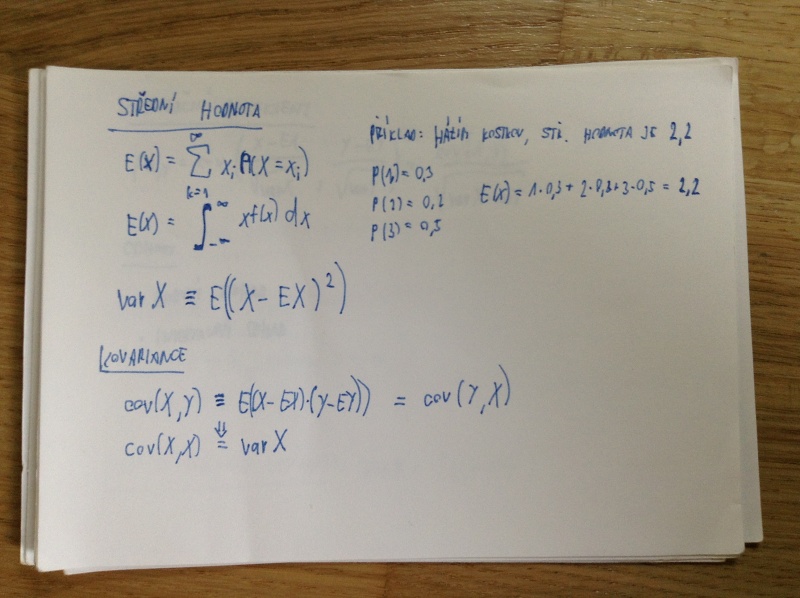 STŘEDNÍ HODNOTA
E(X) = ∑_{k=1}^{∞} x_i P(X = x_i)
E(X) = ∫_{-∞}^{∞} x f(x) dx
PŘÍKLAD: HÁZÍM KOSTKOU, STŘ. HODNOTA JE 2,2
P(1) = 0,3
P(2) = 0,2
P(3) = 0,5
E(X) = 1·0,3 + 2·0,2 + 3·0,5 = 2,2
var X ≡ E((X - EX)^2)
KOVARIANCE
cov(X,Y) ≡ E((X - EX)·(Y - EY)) = cov(Y,X)
⇓
cov(X,X) = var X